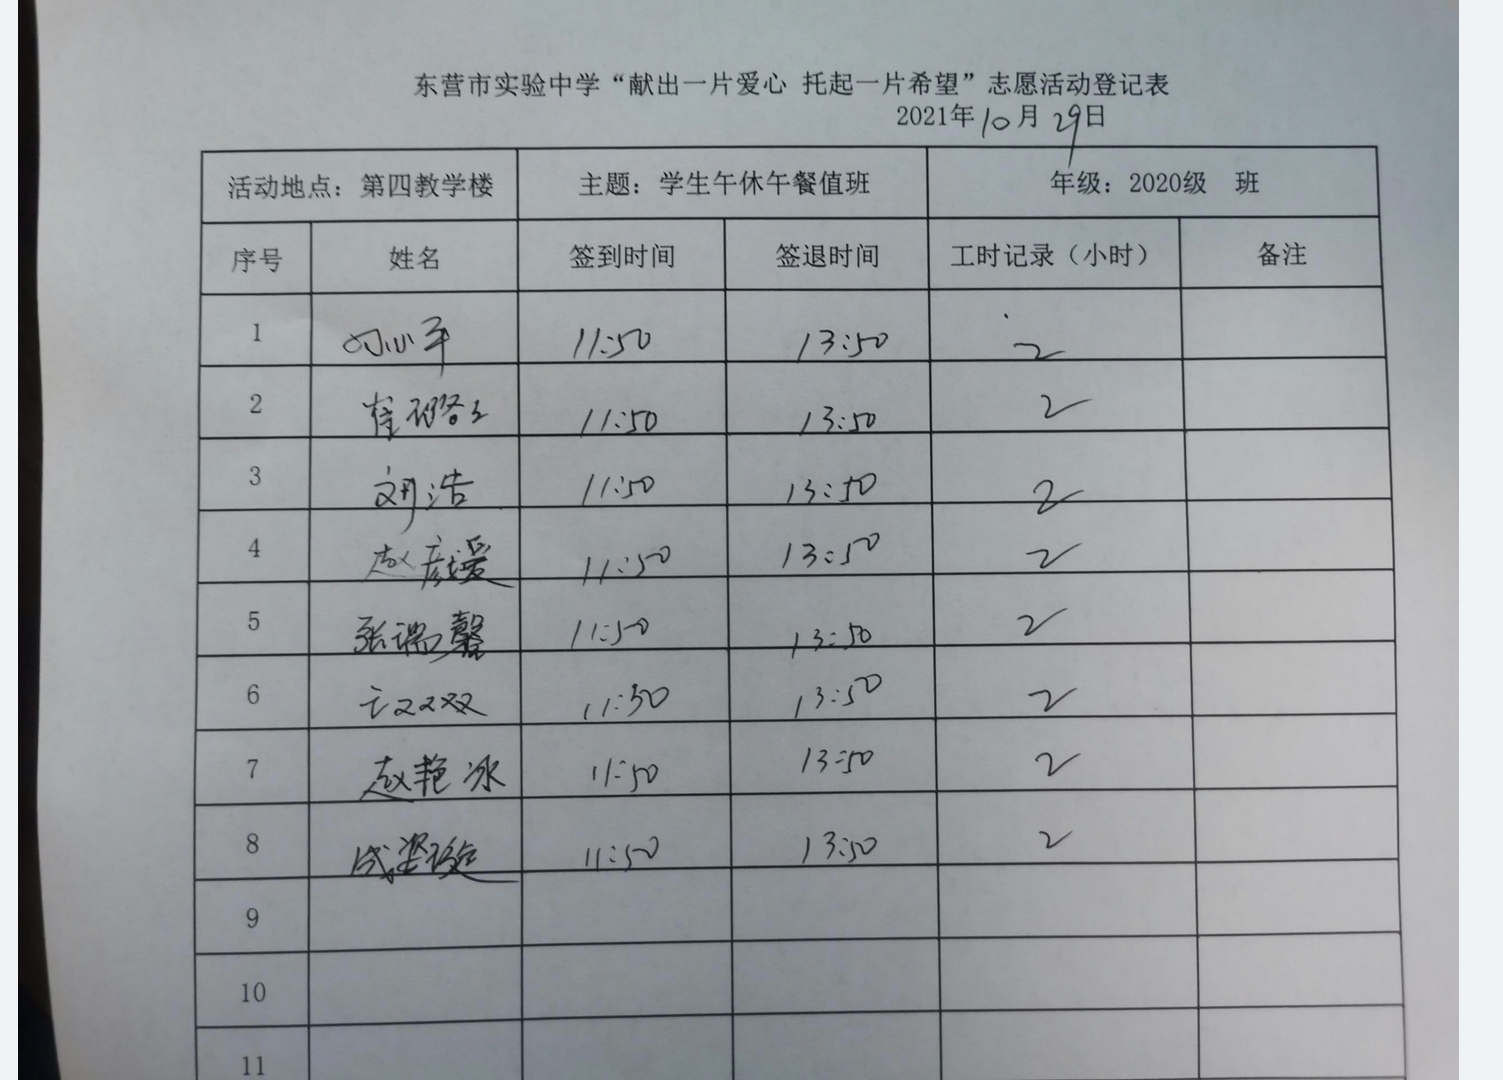 东营市实验中学“献出一片爱心 托起一片希望”志愿活动登记表
2021年10月29日
活动地点：第四教学楼 主题：学生午休午餐值班 年级：2020级 班
序号 姓名 签到时间 签退时间 工时记录（小时） 备注
1 11:50 13:50 2
2 崔璐 11:50 13:50 2
3 刘浩 11:50 13:50 2
4 赵彦媛 11:50 13:50 2
5 张瑞馨 11:50 13:50 2
6 双双 11:50 13:50 2
7 赵艳冰 11:50 13:50 2
8 11:50 13:50 2
9
10
11